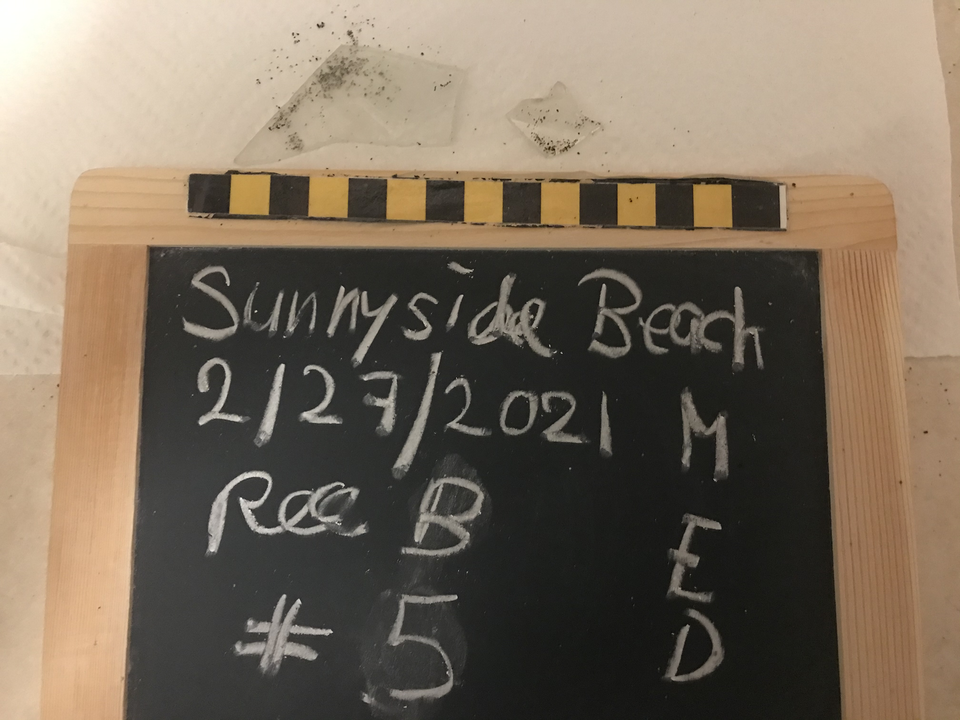 Sunnyside Beach
2/27/2021
Rec B
# 5
M
E
D